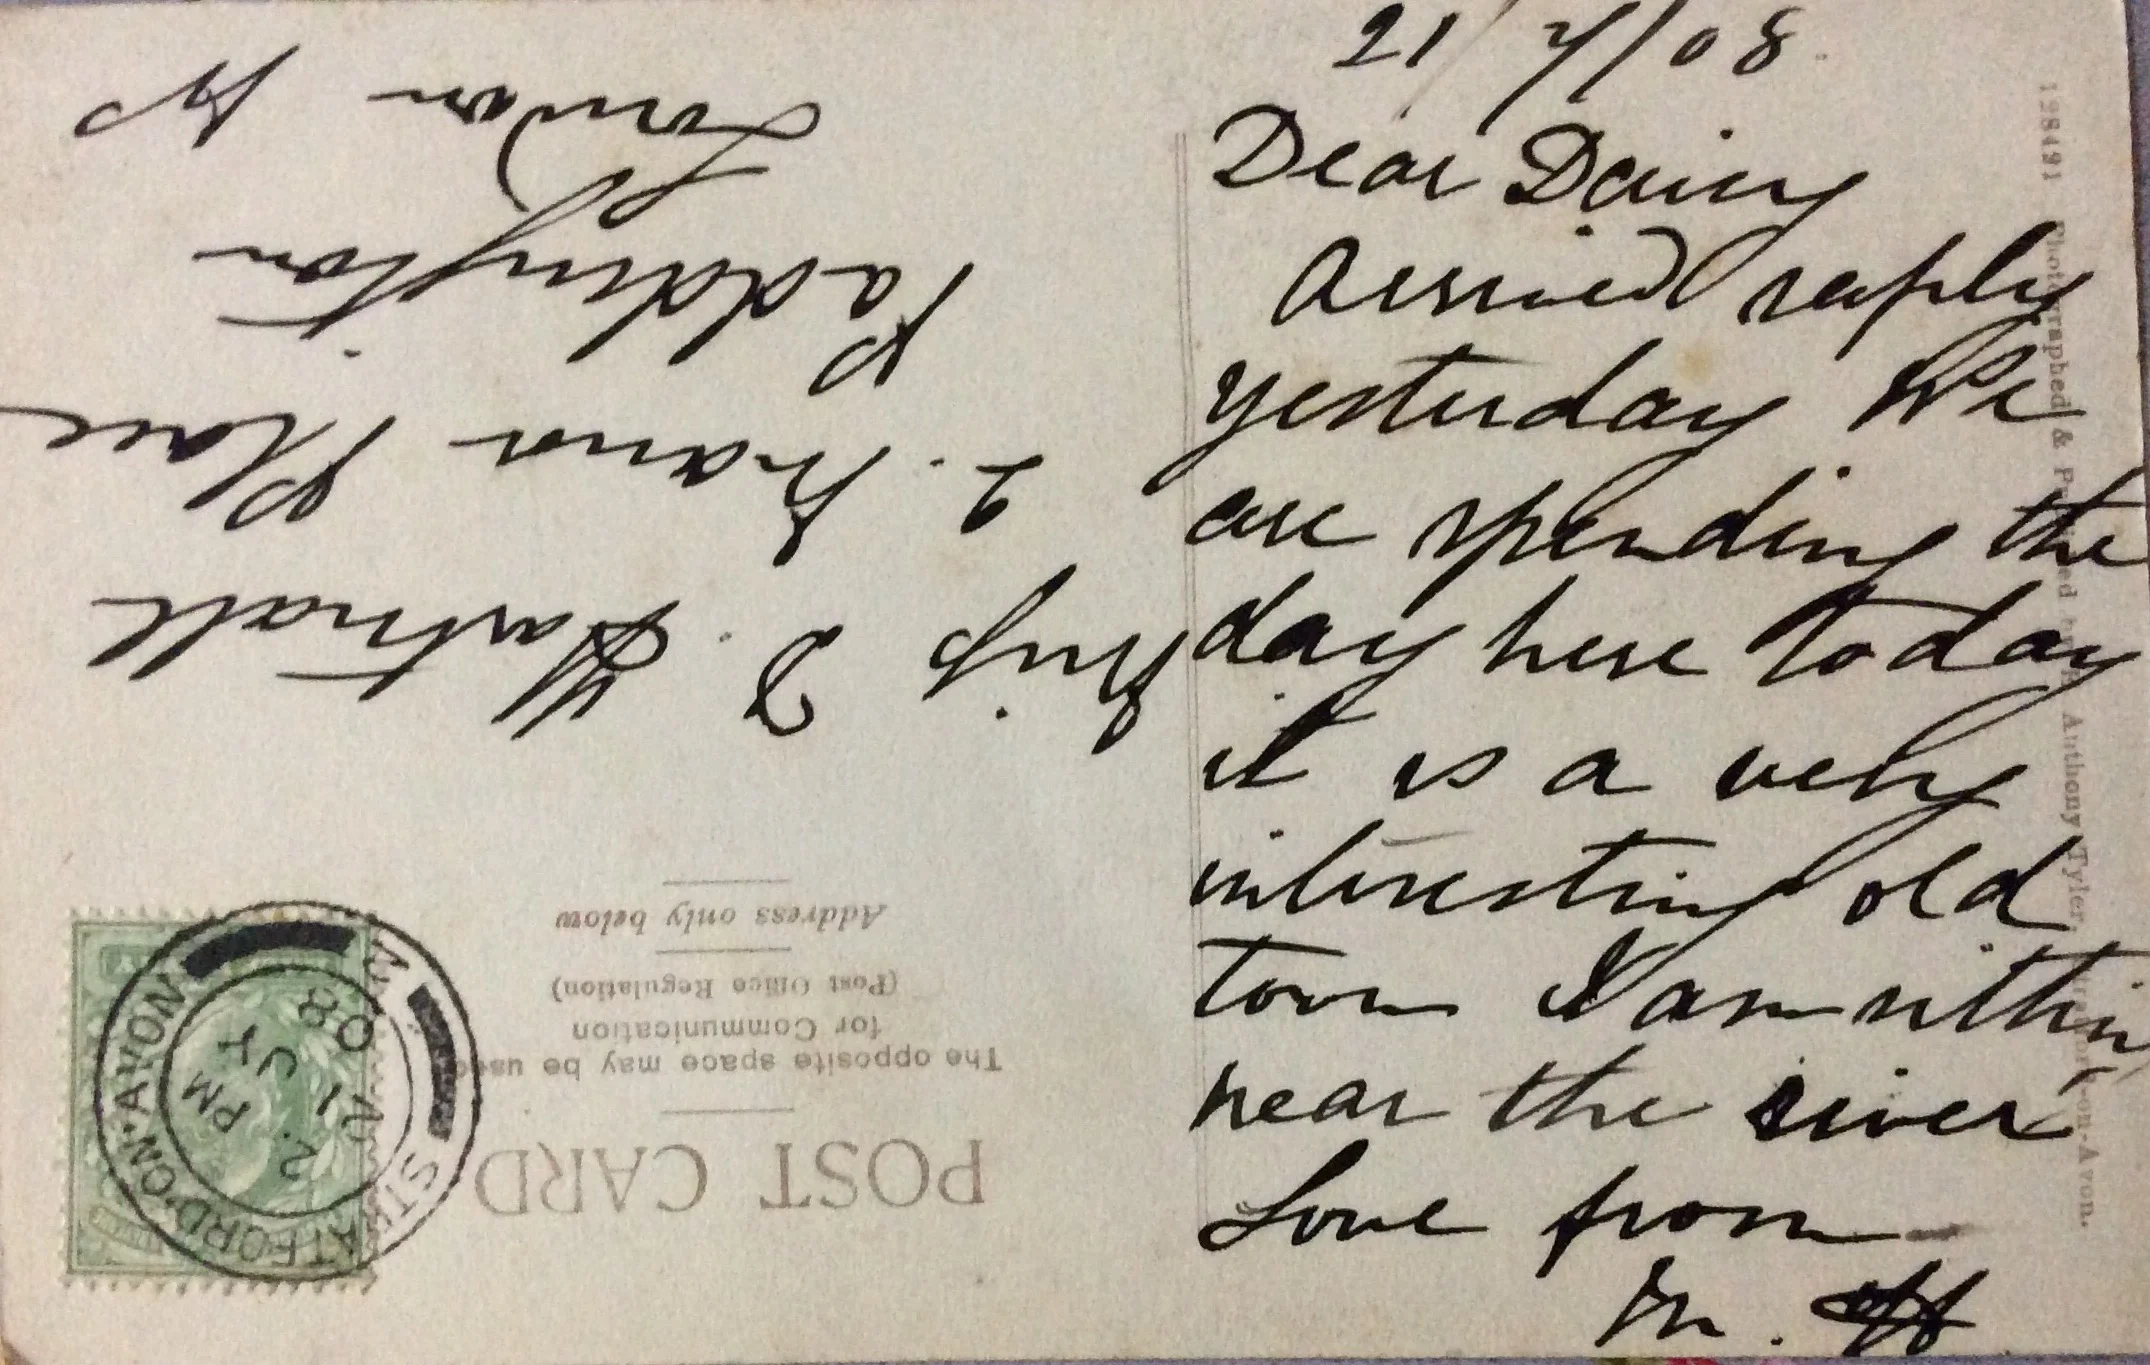 21/7/08
Dear Daisy
Arrived safely
yesterday We
are spending the
day here today
it is a very
interesting old
town I am sitting
near the river
Love from
M. H
POST CARD
The opposite space may be used
for Communication
(Post Office Regulation)
Address only below
Miss D. Hartnall
2. Manor Place
Paddington
London W
STRATFORD·ON·AVON
2 PM
JY 21
08
128491 Photographed & Anthony Tyler, Stratford-on-Avon.